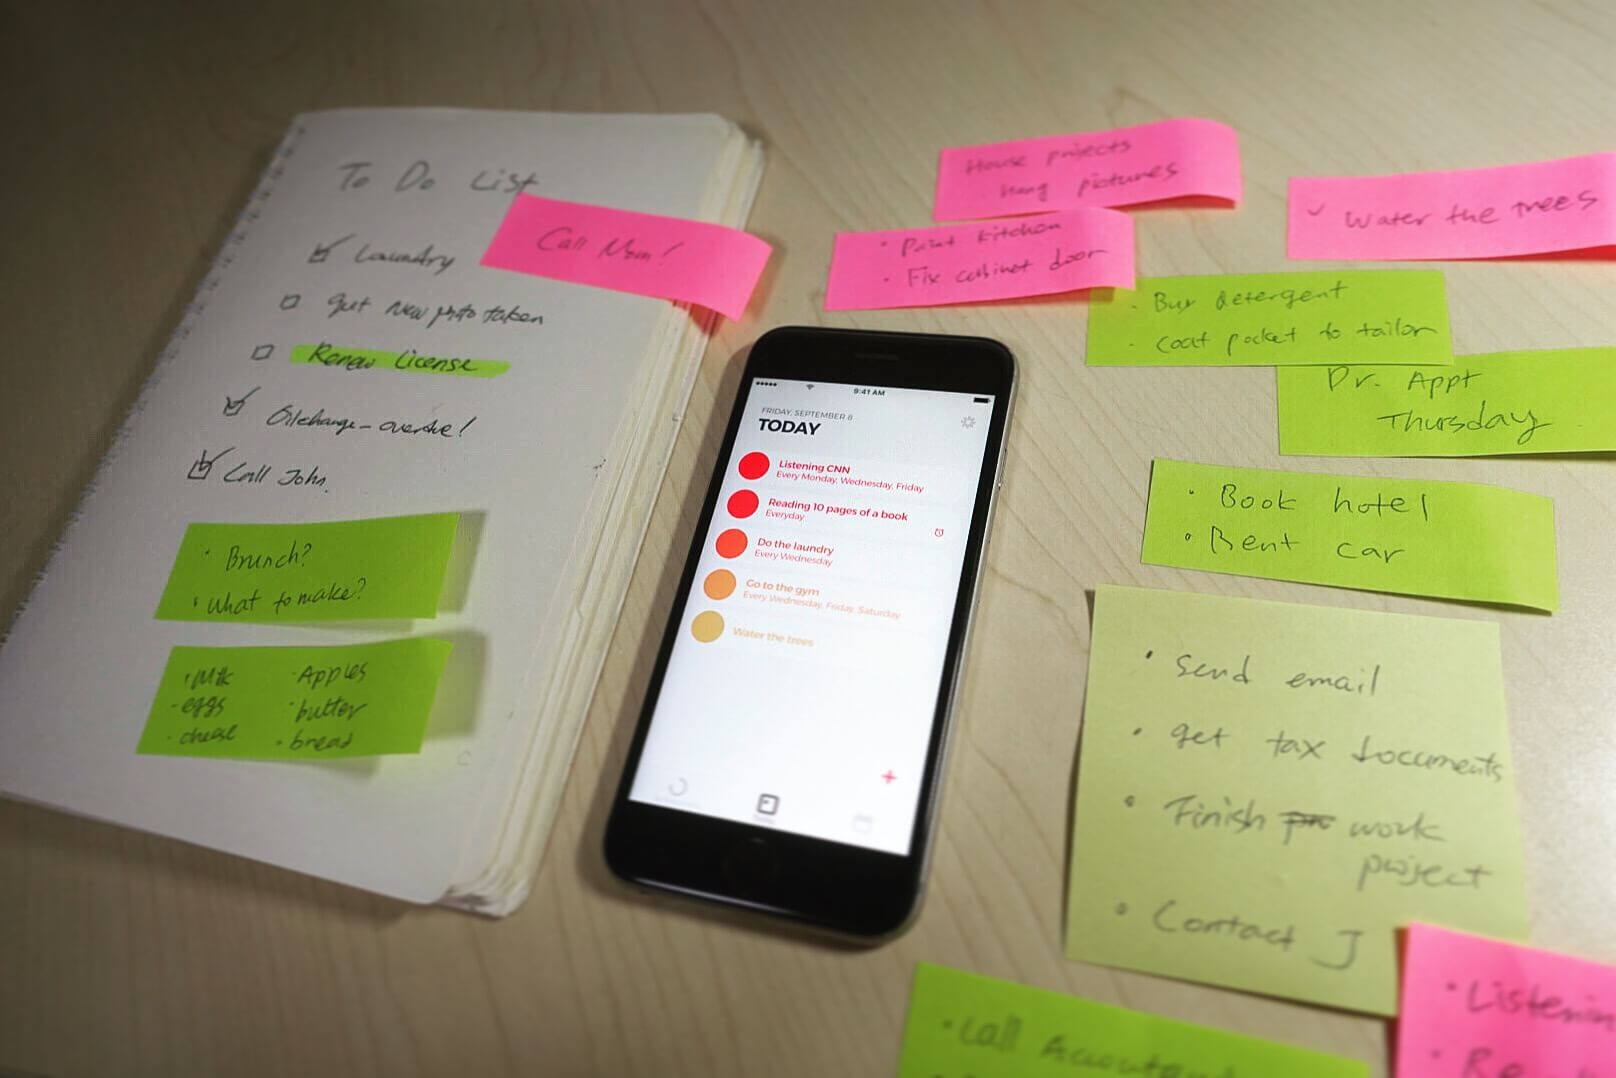 To Do List
Laundry
get New photo taken
Renew License
Oilchange - overdue!
Call John.
Call Mom!
· Brunch?
· What to make?
· Milk · Apples
· eggs · butter
· cheese · bread
9:41 AM
FRIDAY, SEPTEMBER 8
TODAY
Listening CNN
Every Monday, Wednesday, Friday
Reading 10 pages of a book
Everyday
Do the laundry
Every Wednesday
Go to the gym
Every Wednesday, Friday, Saturday
Water the trees
House projects
· Hang pictures
· Paint Kitchen
· Fix cabinet door
Water the trees
· Buy detergent
· coat pocket to tailor
Dr. Appt
Thursday
· Book hotel
· Rent car
· Send email
· get tax documents
· Finish work
project
· Contact J
· Call
· Listenin